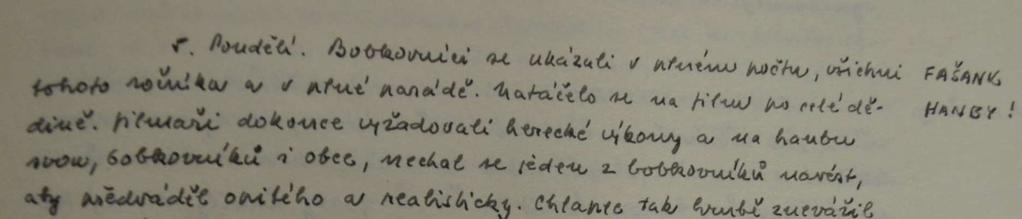 5. Pondělí. Bobkovníci se ukázali v plném počtu, všichni FAŠANK
tohoto ročníka a v plné parádě. Natáčelo se na film po celé dě- HANBY!
dině. Filmaři dokonce vyžadovali herecké výkony a na hanbu
svou, bobkovníků i obce, nechal se jeden z bobkovníků navést,
aby předváděl opitého a realisticky. Chlapec tak hrubě znevážil